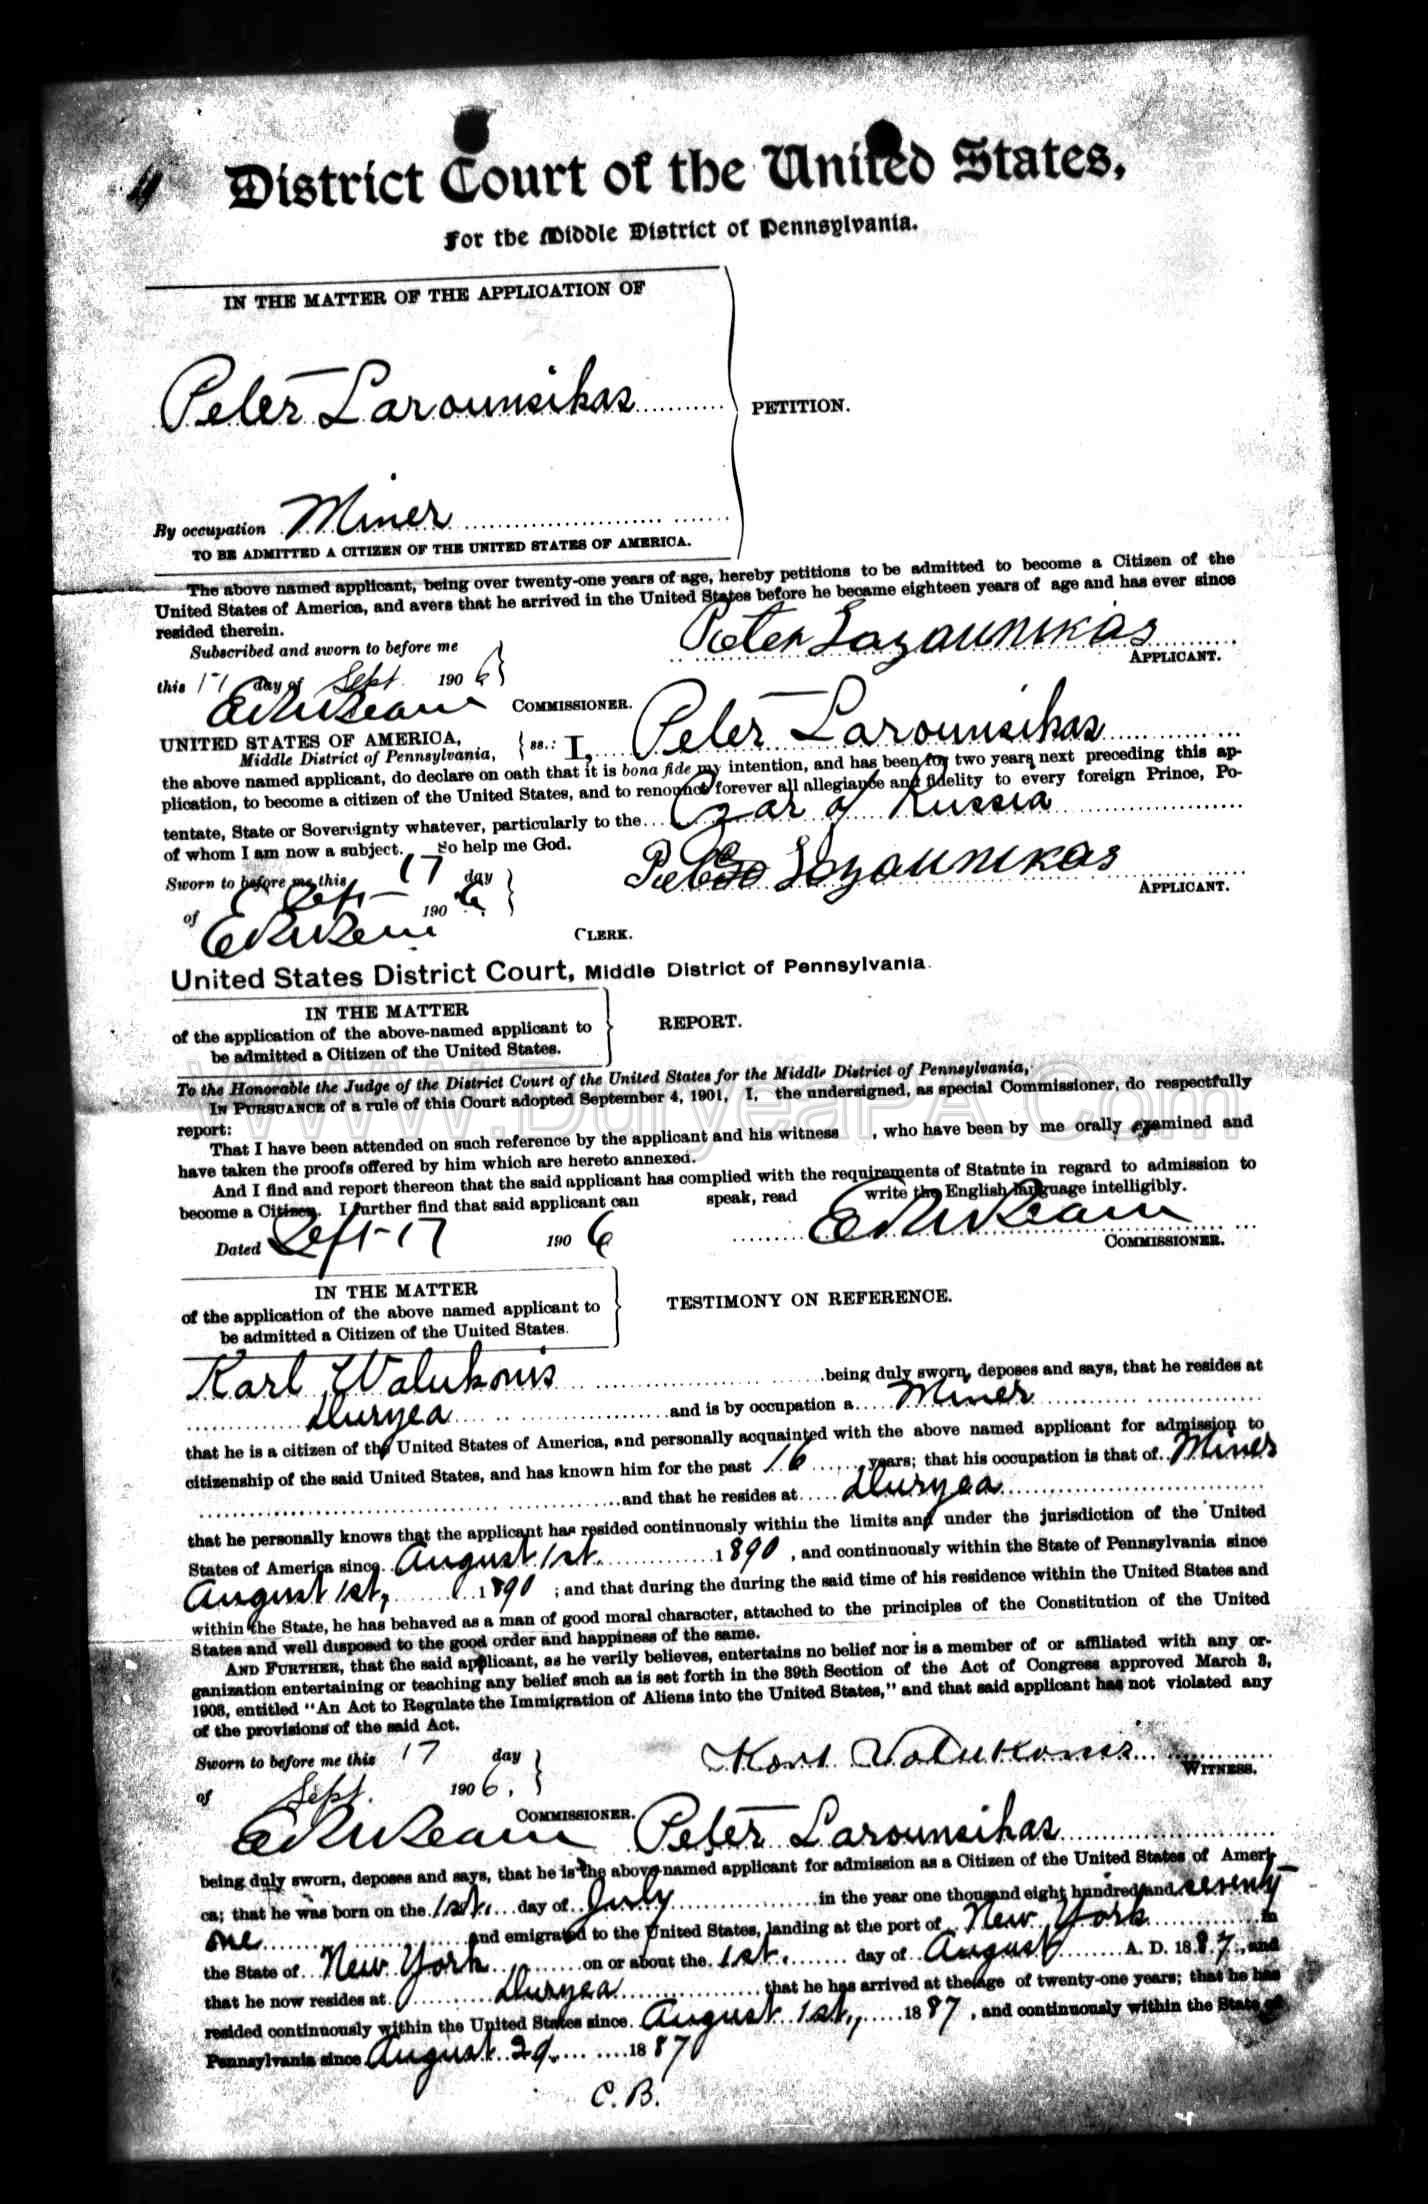 4
District Court of the United States,
For the Middle District of Pennsylvania.
IN THE MATTER OF THE APPLICATION OF
Peter Larounsikas
PETITION.
By occupation Miner
TO BE ADMITTED A CITIZEN OF THE UNITED STATES OF AMERICA.
The above named applicant, being over twenty-one years of age, hereby petitions to be admitted to become a Citizen of the
United States of America, and avers that he arrived in the United States before he became eighteen years of age and has ever since
resided therein.
Subscribed and sworn to before me
Peter Lazaunikas
APPLICANT.
this 17 day of Sept. 1906
COMMISSIONER.
UNITED STATES OF AMERICA,
Middle District of Pennsylvania, ss.: I, Peter Larounsikas
the above named applicant, do declare on oath that it is bona fide my intention, and has been for two years next preceding this ap-
plication, to become a citizen of the United States, and to renounce forever all allegiance and fidelity to every foreign Prince, Po-
tentate, State or Sovereignty whatever, particularly to the Czar of Russia
of whom I am now a subject. So help me God.
Sworn to before me this 17 day
Lozaunikas
APPLICANT.
of Sept 1906
CLERK.
United States District Court, Middle District of Pennsylvania.
IN THE MATTER
of the application of the above-named applicant to
be admitted a Citizen of the United States.
REPORT.
www.DuryeaPA.Com
To the Honorable the Judge of the District Court of the United States for the Middle District of Pennsylvania,
IN PURSUANCE of a rule of this Court adopted September 4, 1901, I, the undersigned, as special Commissioner, do respectfully
report:
That I have been attended on such reference by the applicant and his witness , who have been by me orally examined and
have taken the proofs offered by him which are hereto annexed.
And I find and report thereon that the said applicant has complied with the requirements of Statute in regard to admission to
become a Citizen. I further find that said applicant can speak, read write the English language intelligibly.
Dated Sept 17 1906
COMMISSIONER.
IN THE MATTER
of the application of the above named applicant to
be admitted a Citizen of the United States.
TESTIMONY ON REFERENCE.
Karl Walukonis being duly sworn, deposes and says, that he resides at
Duryea and is by occupation a Miner
that he is a citizen of the United States of America, and personally acquainted with the above named applicant for admission to
citizenship of the said United States, and has known him for the past 16 years; that his occupation is that of Miner
and that he resides at Duryea
that he personally knows that the applicant has resided continuously within the limits and under the jurisdiction of the United
States of America since August 1st. 1890, and continuously within the State of Pennsylvania since
August 1st, 1890; and that during the during the said time of his residence within the United States and
within the State, he has behaved as a man of good moral character, attached to the principles of the Constitution of the United
States and well disposed to the good order and happiness of the same.
AND FURTHER, that the said applicant, as he verily believes, entertains no belief nor is a member of or affiliated with any or-
ganization entertaining or teaching any belief such as is set forth in the 39th Section of the Act of Congress approved March 3,
1903, entitled "An Act to Regulate the Immigration of Aliens into the United States," and that said applicant has not violated any
of the provisions of the said Act.
Sworn to before me this 17 day
Walukonis
WITNESS.
of Sept. 1906.
COMMISSIONER.
Peter Larounsikas
being duly sworn, deposes and says, that he is the above named applicant for admission as a Citizen of the United States of Ameri-
ca; that he was born on the 1st. day of July in the year one thousand eight hundred and seventy
one and emigrated to the United States, landing at the port of New York in
the State of New York on or about the 1st. day of August A. D. 1887, and
that he now resides at Duryea that he has arrived at the age of twenty-one years; that he has
resided continuously within the United States since August 1st, 1887, and continuously within the State of
Pennsylvania since August 29 1887
C.B.